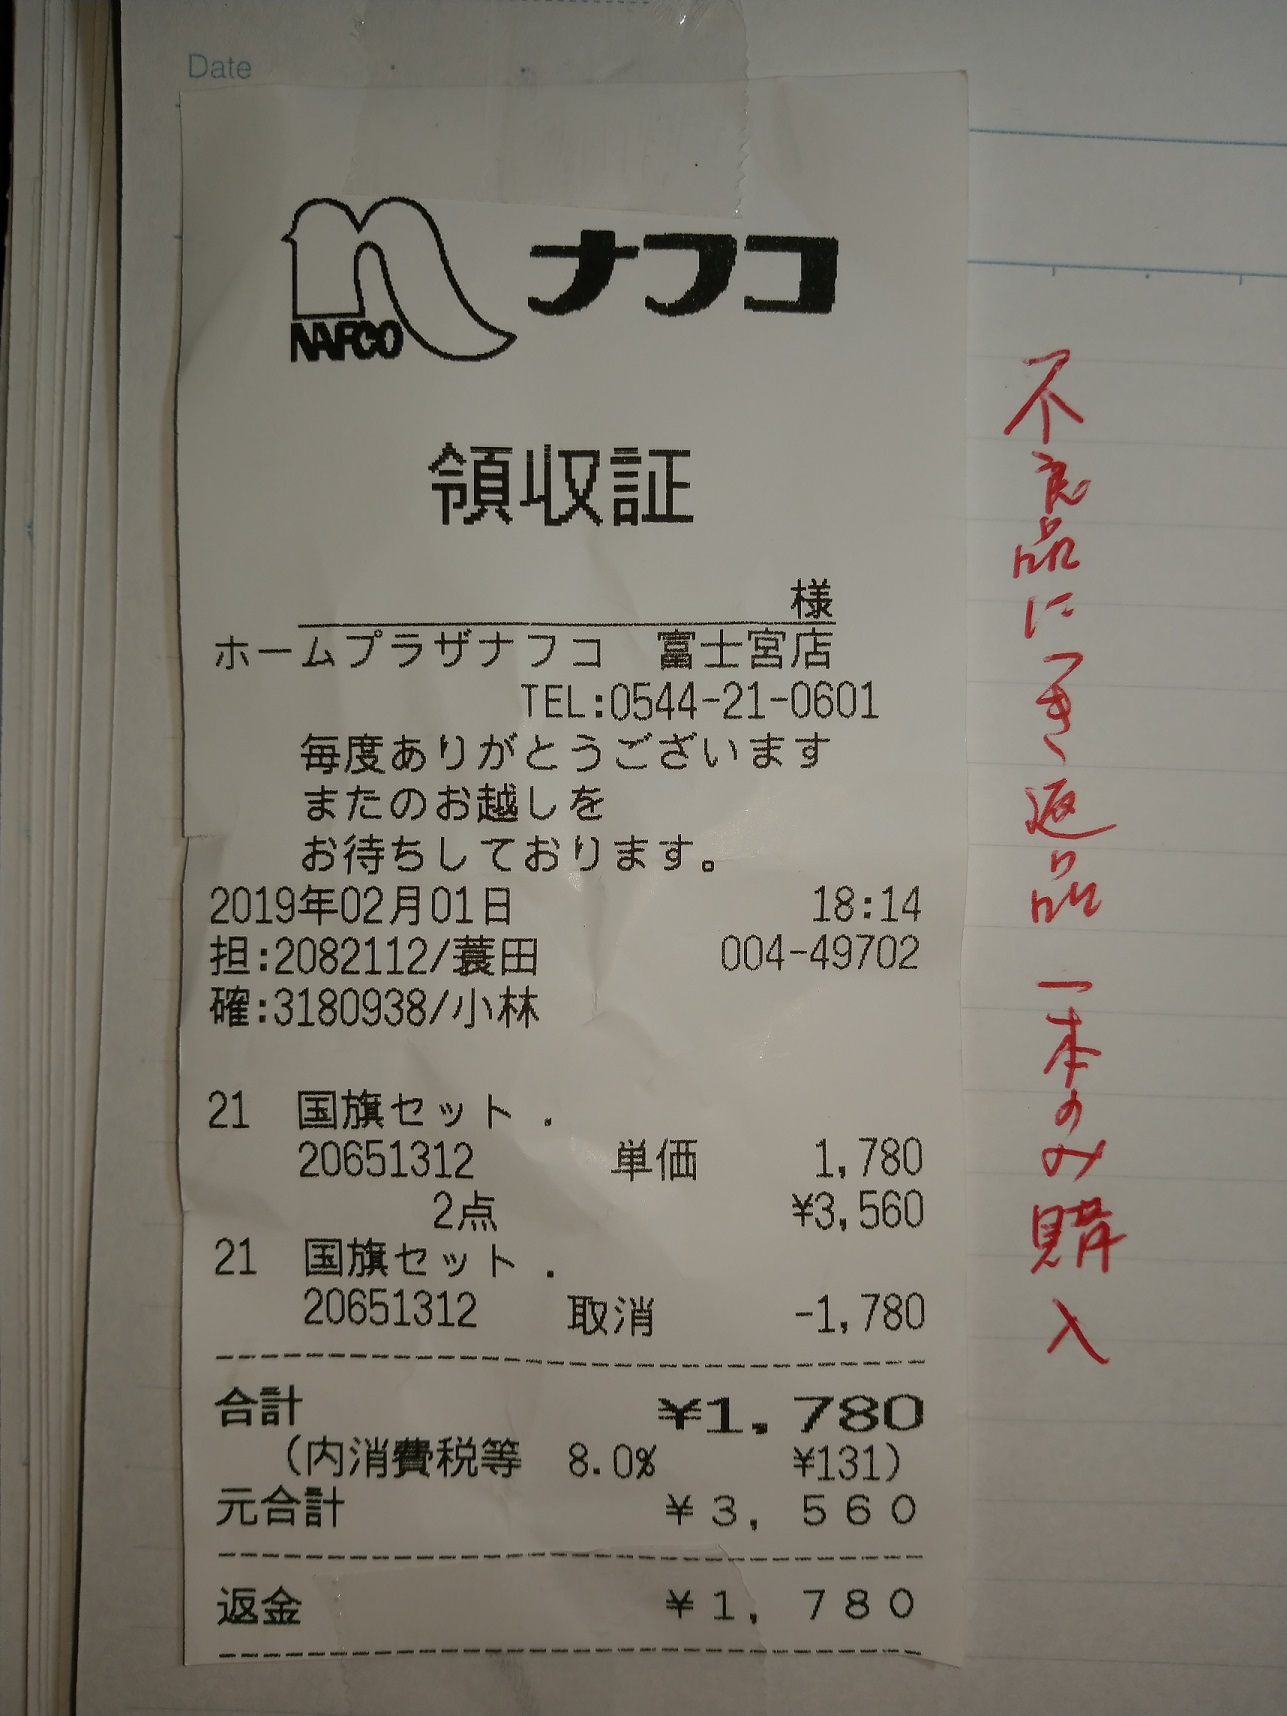 Date
NAFCO ナフコ
領収証
様
ホームプラザナフコ 富士宮店
TEL:0544-21-0601
毎度ありがとうございます
またのお越しを
お待ちしております。
2019年02月01日 18:14
担:2082112/蓑田 004-49702
確:3180938/小林
21 国旗セット .
20651312 単価 1,780
2点 ¥3,560
21 国旗セット .
20651312 取消 -1,780
合計 ¥1,780
(内消費税等 8.0% ¥131)
元合計 ¥3,560
返金 ¥1,780
不良品につき返品 一本のみ購入